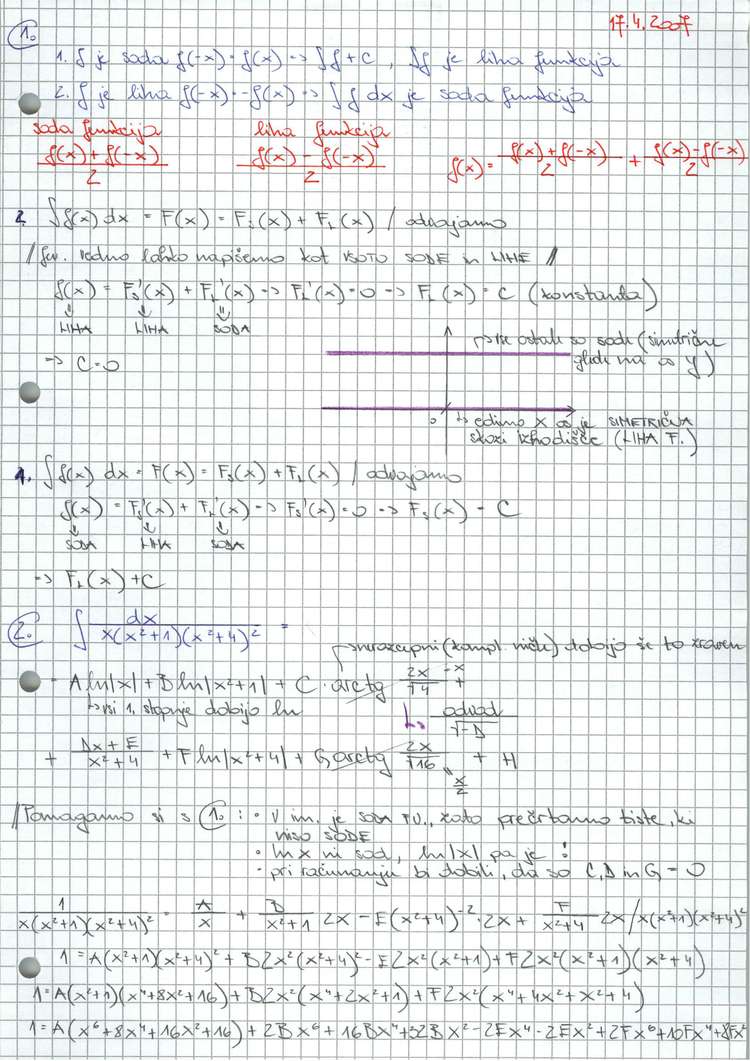 17.4.2007
1.
1. f je soda f(-x) = f(x) => ∫f + C, ∫f je liha funkcija
2. f je liha f(-x) = -f(x) => ∫f dx je soda funkcija
soda funkcija liha funkcija
(f(x) + f(-x))/2 (f(x) - f(-x))/2 f(x) = (f(x) + f(-x))/2 + (f(x) - f(-x))/2
2. ∫f(x) dx = F(x) = F_S(x) + F_L(x) / odvajamo
/ fun. vedno lahko napišemo kot VSOTO SODE in LIHE //
f(x) = F_S'(x) + F_L'(x) => F_L'(x) = 0 => F_L(x) = C (konstanta)
LIHA LIHA SODA
=> C = 0
vse ostale so sode (simetrične
glede na os y)
0 edino x os je SIMETRIČNA
skozi izhodišče (LIHA F.)
1. ∫f(x) dx = F(x) = F_S(x) + F_L(x) / odvajamo
f(x) = F_S'(x) + F_L'(x) => F_S'(x) = 0 => F_S(x) = C
SODA LIHA SODA
=> F_L(x) + C
2. ∫ dx/(x(x²+1)(x²+4)²) =
nerazcepni (kompl. ničle) dobijo še to zraven
= A ln|x| + B ln|x²+1| + C · arctg 2x/√4 → x +
vsi 1. stopnje dobijo ln odvod/√-D
+ (Dx + E)/(x²+4) + F ln|x²+4| + G arctg 2x/√16 + H
x/2
/ Pomagamo si s 1. : · V im. je SODA FU., zato prečrtamo tiste, ki
niso SODE
· ln x ni sod, ln|x| pa je !
· pri računanju bi dobili, da so C, D in G = 0
1/(x(x²+1)(x²+4)²) = A/x + B/(x²+1) 2x - E(x²+4)⁻² · 2x + F/(x²+4) 2x / x(x²+1)(x²+4)²
1 = A(x²+1)(x²+4)² + B2x²(x²+4)² - E2x²(x²+1) + F2x²(x²+1)(x²+4)
1 = A(x²+1)(x⁴+8x²+16) + B2x²(x⁴+2x²+1) + F2x²(x⁴+4x²+x²+4)
1 = A(x⁶+8x⁴+16x²+16) + 2Bx⁶ + 16Bx⁴ + 32Bx² - 2Ex⁴ - 2Ex² + 2Fx⁶ + 10Fx⁴ + 8Fx²